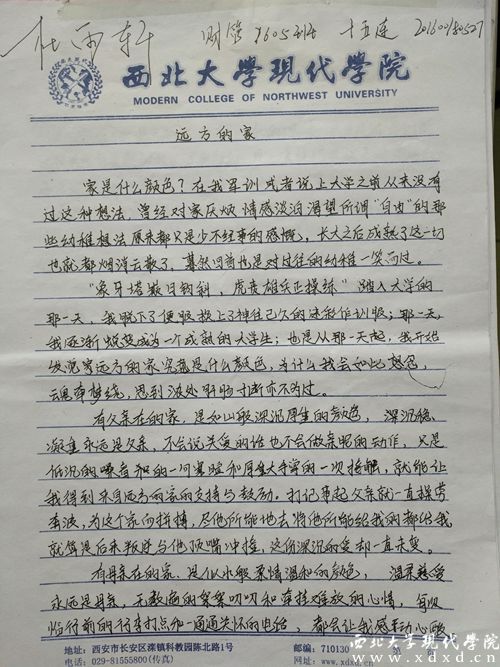 杜雨轩 财管1605班 十五连 20160080527
西北大学现代学院
MODERN COLLEGE OF NORTHWEST UNIVERSITY
远方的家
家是什么颜色?在我军训或者说上大学之前从来没有
过这种想法,曾经对家厌烦 情感淡泊 渴望所谓“自由”的那
些幼稚想法 原来都只是少不经事的感慨,长大之后成熟了这一切
也就都烟消云散了,蓦然回首也是对过往的幼稚一笑而过。
“象牙塔 砺日 剑利,虎贲雄兵正操练”踏入大学的
那一天,我脱下了便服换上了神往已久的迷彩作训服;那一天,
我逐渐蜕变成为一个成熟的大学生;也是从那一天起,我开始
发觉家远方的家究竟是什么颜色,为什么我会如此想念,
魂牵梦绕,思到深处肝肠寸断亦不为过。
有父亲在的家,是如山般深沉厚重的颜色,深沉稳
凝重永远是父亲,不会说关爱的话也不会做亲昵的动作,只是
低沉的嗓音和的一句寒暄和厚重大手掌的一次接触,就能让
我得到来自远方的家的支持与鼓励。打记事起父亲就一直操劳
奔波,为这个家而拼搏,尽他所能地去将他所能给我的都给我
就算是后来叛逆与他顶嘴冲撞,这份深沉的爱却一直未变。
有母亲在的家,是似水般柔情温和的颜色,温柔慈爱
永远是母亲,无数遍的絮絮叨叨和牵挂难放的心情,每次
临行前的行李打点和一通通关怀的电话,都会让我感动心暖
地址:西安市长安区滦镇科教园陈北路1号
邮编:710130
电话:029-81555800(传真)
西北大学现代学院
www.xdxd.cn